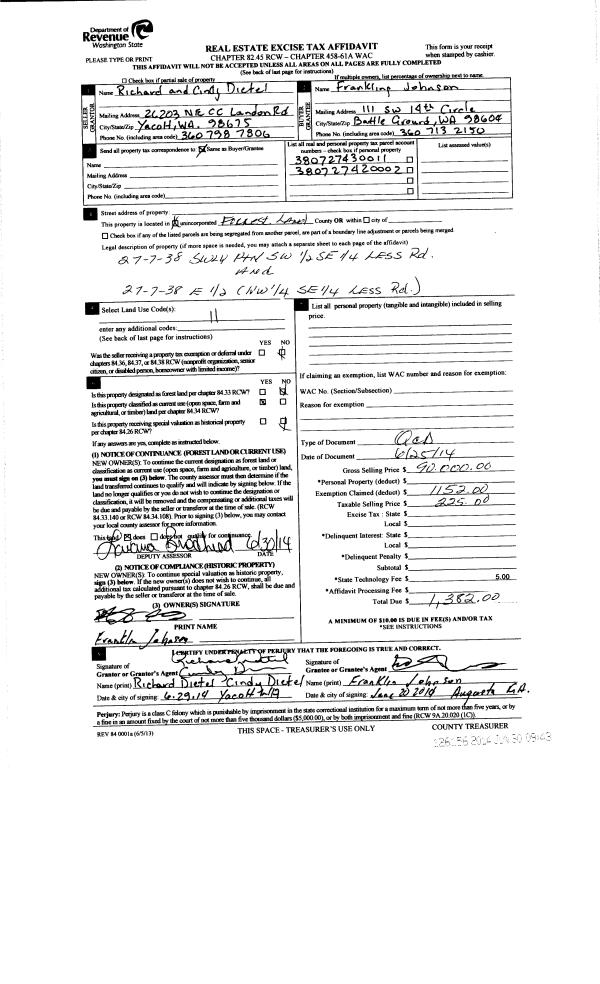 Department of
Revenue
Washington State
PLEASE TYPE OR PRINT
REAL ESTATE EXCISE TAX AFFIDAVIT
CHAPTER 82.45 RCW – CHAPTER 458-61A WAC
This form is your receipt
when stamped by cashier.
THIS AFFIDAVIT WILL NOT BE ACCEPTED UNLESS ALL AREAS ON ALL PAGES ARE FULLY COMPLETED
(See back of last page for instructions)
Check box if partial sale of property
If multiple owners, list percentage of ownership next to name.
SELLER GRANTOR
Name Richard and Cindy Dietel
Mailing Address 26203 NE CC Landon Rd
City/State/Zip Yacolt, WA. 98675
Phone No. (including area code) 360 798 7806
BUYER GRANTEE
Name Frankling Johnson
Mailing Address 111 SW 14th Circle
City/State/Zip Battle Ground, WA 98604
Phone No. (including area code) 360 713 2150
Send all property tax correspondence to: Same as Buyer/Grantee
Name
Mailing Address
City/State/Zip
Phone No. (including area code)
List all real and personal property tax parcel account
numbers – check box if personal property
380727430011
380727420002
List assessed value(s)
Street address of property
This property is located in unincorporated Forrest Land County OR within city of
Check box if any of the listed parcels are being segregated from another parcel, are part of a boundary line adjustment or parcels being merged.
Legal description of property (if more space is needed, you may attach a separate sheet to each page of the affidavit)
27-7-38 SWLY PTN SW 1/2 SE 1/4 LESS Rd.
AND
27-7-38 E 1/2 (NW 1/4 SE 1/4 LESS Rd.)
Select Land Use Code(s):
11
enter any additional codes:
(See back of last page for instructions)
YES NO
Was the seller receiving a property tax exemption or deferral under
chapters 84.36, 84.37, or 84.38 RCW (nonprofit organization, senior
citizen, or disabled person, homeowner with limited income)?
YES NO
Is this property designated as forest land per chapter 84.33 RCW?
Is this property classified as current use (open space, farm and
agricultural, or timber) land per chapter 84.34 RCW?
Is this property receiving special valuation as historical property
per chapter 84.26 RCW?
If any answers are yes, complete as instructed below.
(1) NOTICE OF CONTINUANCE (FOREST LAND OR CURRENT USE)
NEW OWNER(S): To continue the current designation as forest land or
classification as current use (open space, farm and agriculture, or timber) land,
you must sign on (3) below. The county assessor must then determine if the
land transferred continues to qualify and will indicate by signing below. If the
land no longer qualifies or you do not wish to continue the designation or
classification, it will be removed and the compensating or additional taxes will
be due and payable by the seller or transferor at the time of sale. (RCW
84.33.140 or RCW 84.34.108). Prior to signing (3) below, you may contact
your local county assessor for more information.
This land does does not qualify for continuance.
6/30/14
DEPUTY ASSESSOR DATE
(2) NOTICE OF COMPLIANCE (HISTORIC PROPERTY)
NEW OWNER(S): To continue special valuation as historic property,
sign (3) below. If the new owner(s) does not wish to continue, all
additional tax calculated pursuant to chapter 84.26 RCW, shall be due and
payable by the seller or transferor at the time of sale.
(3) OWNER(S) SIGNATURE
PRINT NAME
Franklin Johnson
List all personal property (tangible and intangible) included in selling
price.
If claiming an exemption, list WAC number and reason for exemption:
WAC No. (Section/Subsection)
Reason for exemption
Type of Document QCD
Date of Document 6/25/14
Gross Selling Price $ 90,000.00
*Personal Property (deduct) $
Exemption Claimed (deduct) $ 1152.00
Taxable Selling Price $ 225.00
Excise Tax : State $
Local $
*Delinquent Interest: State $
Local $
*Delinquent Penalty $
Subtotal $
*State Technology Fee $ 5.00
*Affidavit Processing Fee $
Total Due $ 1,382.00
A MINIMUM OF $10.00 IS DUE IN FEE(S) AND/OR TAX
*SEE INSTRUCTIONS
I CERTIFY UNDER PENALTY OF PERJURY THAT THE FOREGOING IS TRUE AND CORRECT.
Signature of
Grantor or Grantor's Agent
Name (print) Richard Dietel Cindy Dietel
Date & city of signing: 6-29-14 Yacolt WA
Signature of
Grantee or Grantee's Agent
Name (print) Franklin Johnson
Date & city of signing: June 20 2014 Augusta GA.
Perjury: Perjury is a class C felony which is punishable by imprisonment in the state correctional institution for a maximum term of not more than five years, or by
a fine in an amount fixed by the court of not more than five thousand dollars ($5,000.00), or by both imprisonment and fine (RCW 9A.20.020 (1C)).
REV 84 0001a (6/5/13)
THIS SPACE - TREASURER'S USE ONLY
COUNTY TREASURER
126156 2014 JUN 30 09:43